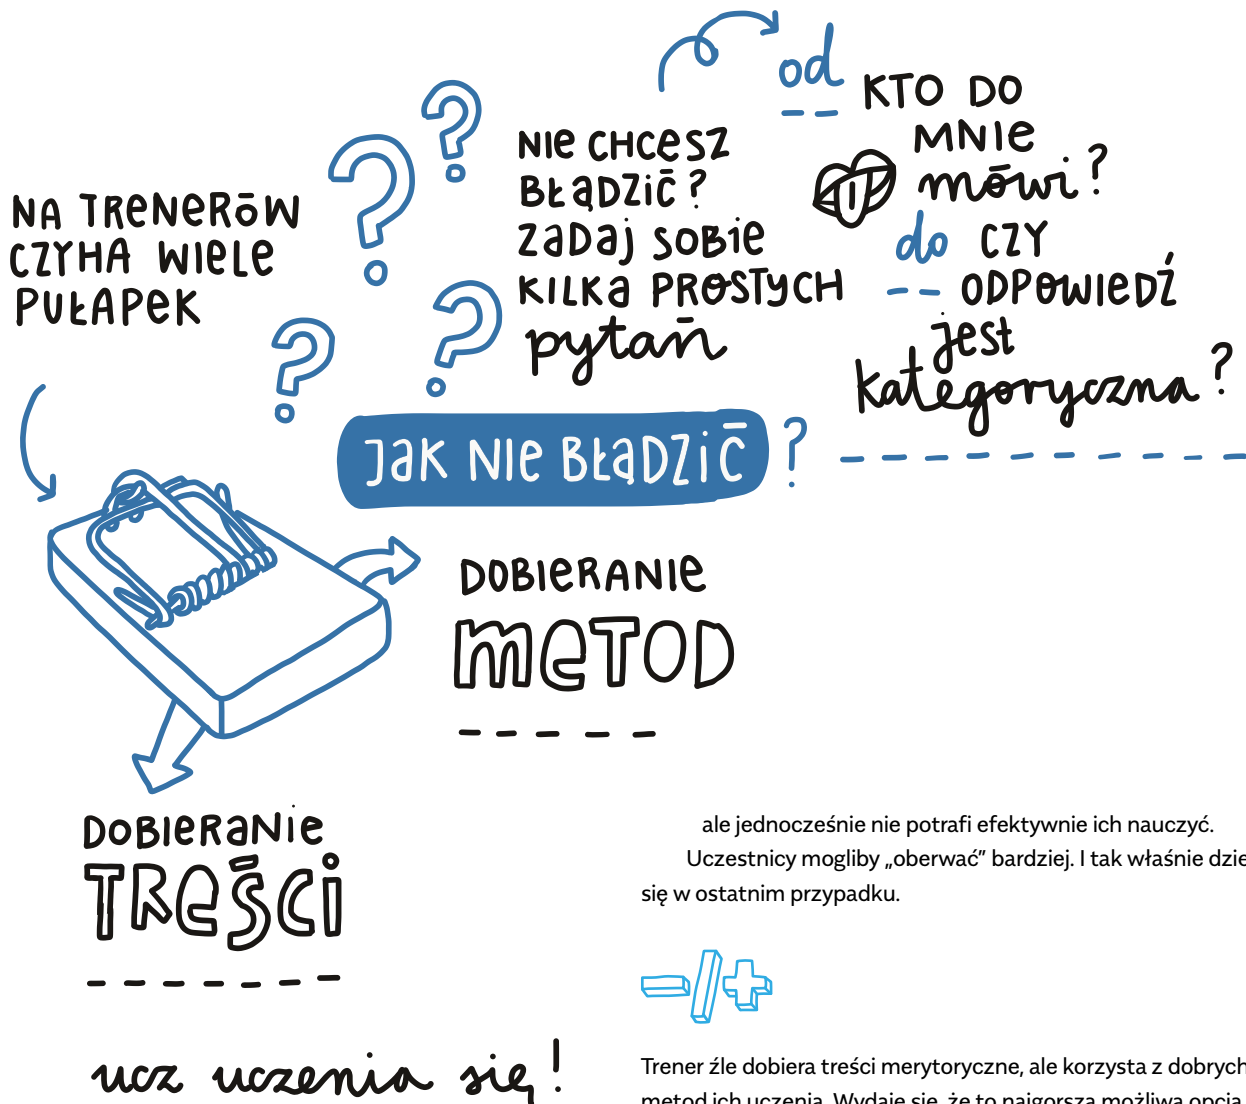 NA TRENERÓW
CZYHA WIELE
PUŁAPEK
NIE CHCESZ
BŁĄDZIĆ?
ZADAJ SOBIE
KILKA PROSTYCH
pytań
od KTO DO
MNIE
mówi?
do CZY
ODPOWIEDŹ
jest
kategoryczna?
JAK NIE BŁĄDZIĆ?
DOBIERANIE
METOD
DOBIERANIE
TREŚCI
ucz uczenia się!
ale jednocześnie nie potrafi efektywnie ich nauczyć.
Uczestnicy mogliby „oberwać” bardziej. I tak właśnie dzie
się w ostatnim przypadku.
-/+
Trener źle dobiera treści merytoryczne, ale korzysta z dobrych
metod ich uczenia. Wydaje się, że to najgorsza możliwa opcja